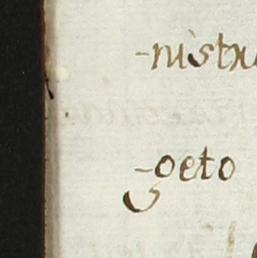 -nistru
-goeto